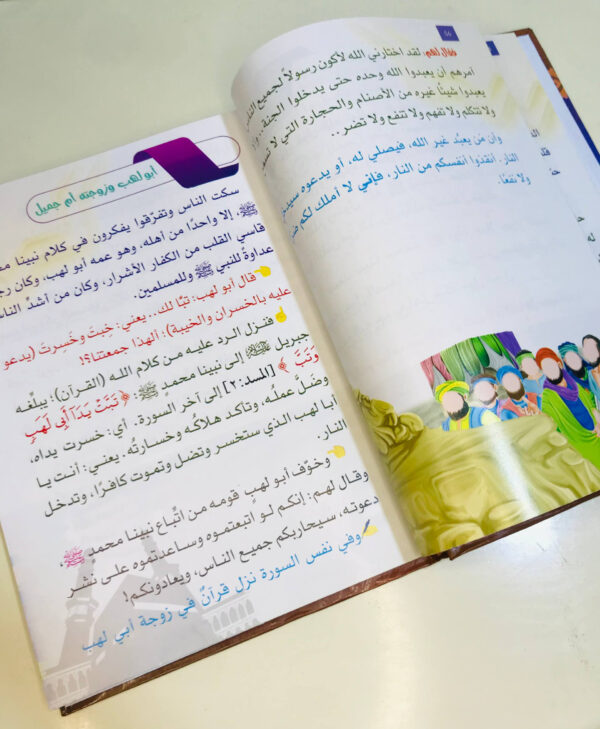 56
فقال لهم: لقد اختارني الله لأكون رسولاً لجميع
آمرهم أن يعبدوا الله وحده حتى يدخلوا الجنة..
يعبدوا شيئًا غيره من الأصنام والحجارة التي لا
ولا تتكلم ولا تفهم ولا تنفع ولا تضر..
وأن من يعبُد غير الله، فيصلي له، أو يدعوه
النار. أنقذوا أنفسكم من النار، فإني لا أملك لكم
ولا نفعًا.
أبو لهب وزوجته أم جميل
سكت الناس وتفرّقوا يفكرون في كلام نبينا
ﷺ، إلا واحدًا من أهله، وهو عمه أبو لهب، وكان
قاسي القلب من الكفار الأشرار، وكان من أشدِّ
عداوةً للنبي ﷺ وللمسلمين.
قال أبو لهب: تبًّا لك.. يعني: خِبتَ وخَسِرتَ (يدعو
عليه بالخسران والخيبة): ألهذا جمعتنا؟!
فنزل الرد عليه من كلام الله (القرآن)؛ يبلِّغه
جبريل ﷺ إلى نبينا محمدٍ ﷺ: ﴿ تَبَّتْ يَدَا أَبِي لَهَبٍ
وَتَبَّ ﴾ [المسد:٢] إلى آخر السورة. أي: خسرت يداه،
وضلَّ عملُه، وتأكد هلاكُه وخسارتُه. يعني: أنت يا
أبا لهب الذي ستخسر وتضل وتموت كافرًا، وتدخل
النار.
وخوَّف أبو لهبٍ قومه من اتِّباع نبينا محمدٍ ﷺ،
وقال لهم: إنكم لو اتبعتموه وساعدتموه على نشر
دعوته، سيحاربكم جميع الناس، ويعادونكم!
وفي نفس السورة نزل قرآنٌ في زوجة أبي لهب